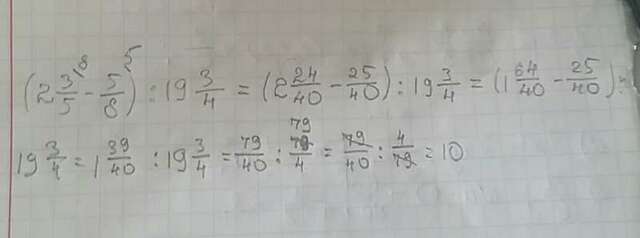 (2 3/5⁸ - 5/8⁵) : 19 3/4 = (2 24/40 - 25/40) : 19 3/4 = (1 64/40 - 25/40) :
19 3/4 = 1 39/40 : 19 3/4 = 79/40 : 79/4 = 79/40 : 4/79 = 10